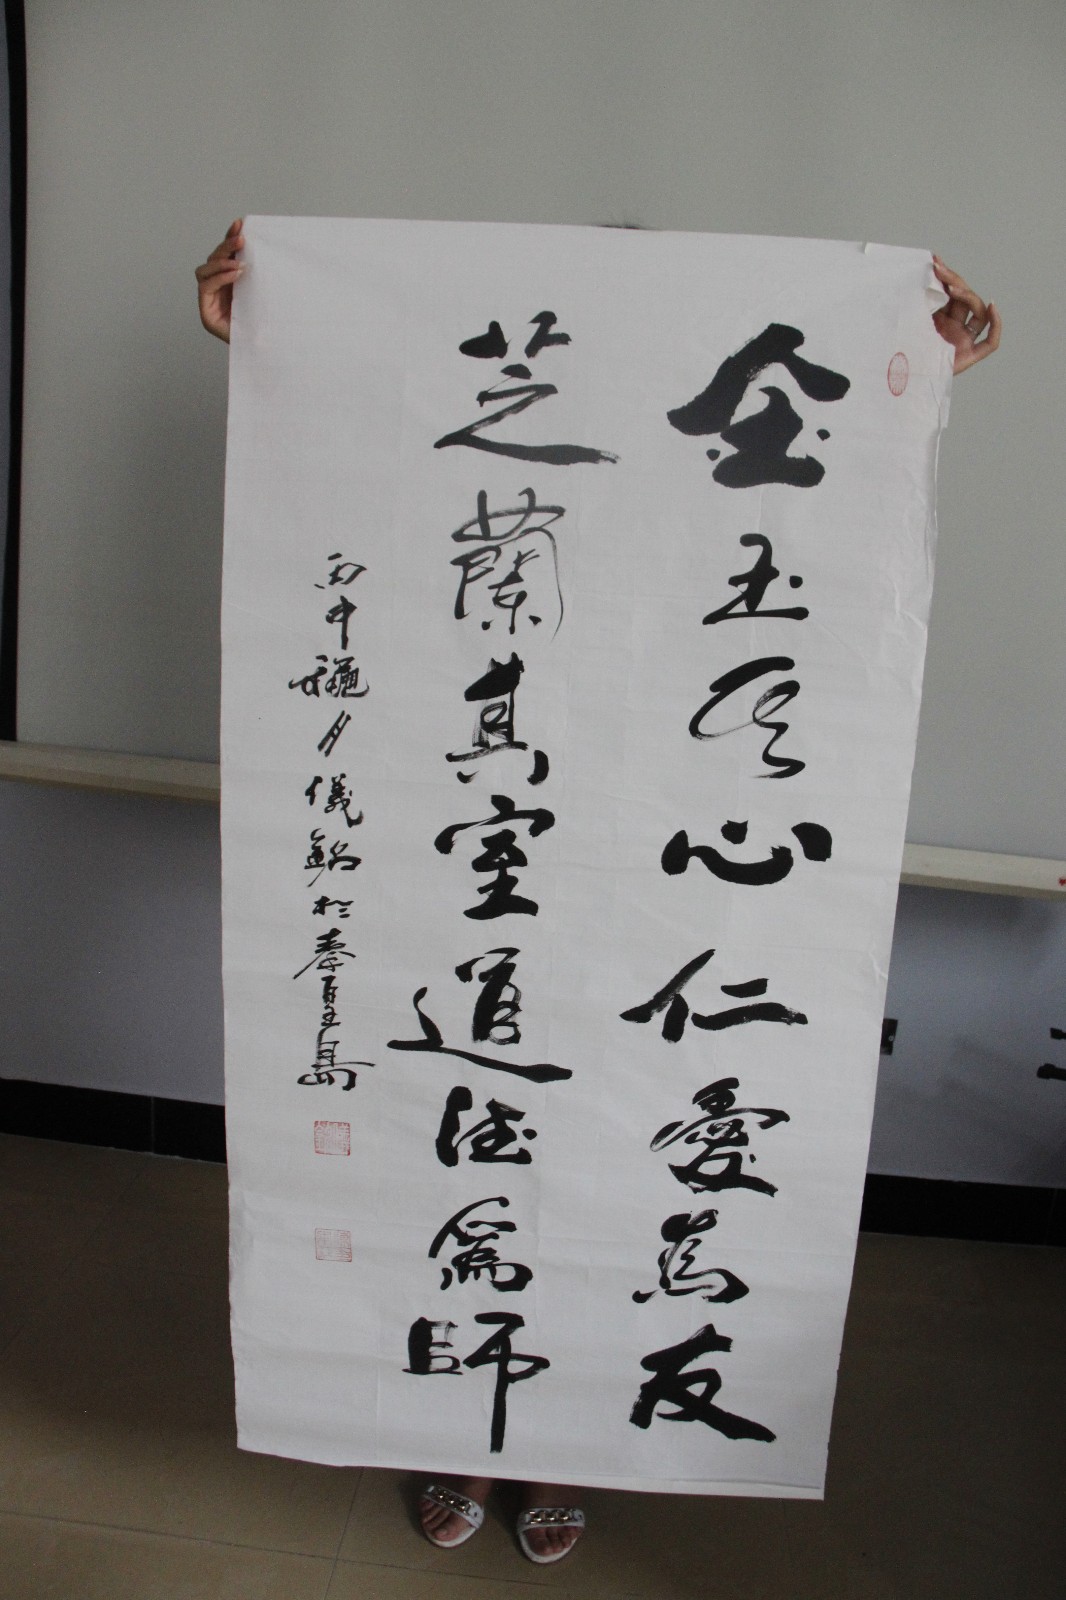 金玉其心仁愛為友
芝蘭其室道德為師
丙申龝月儀銘於秦皇島